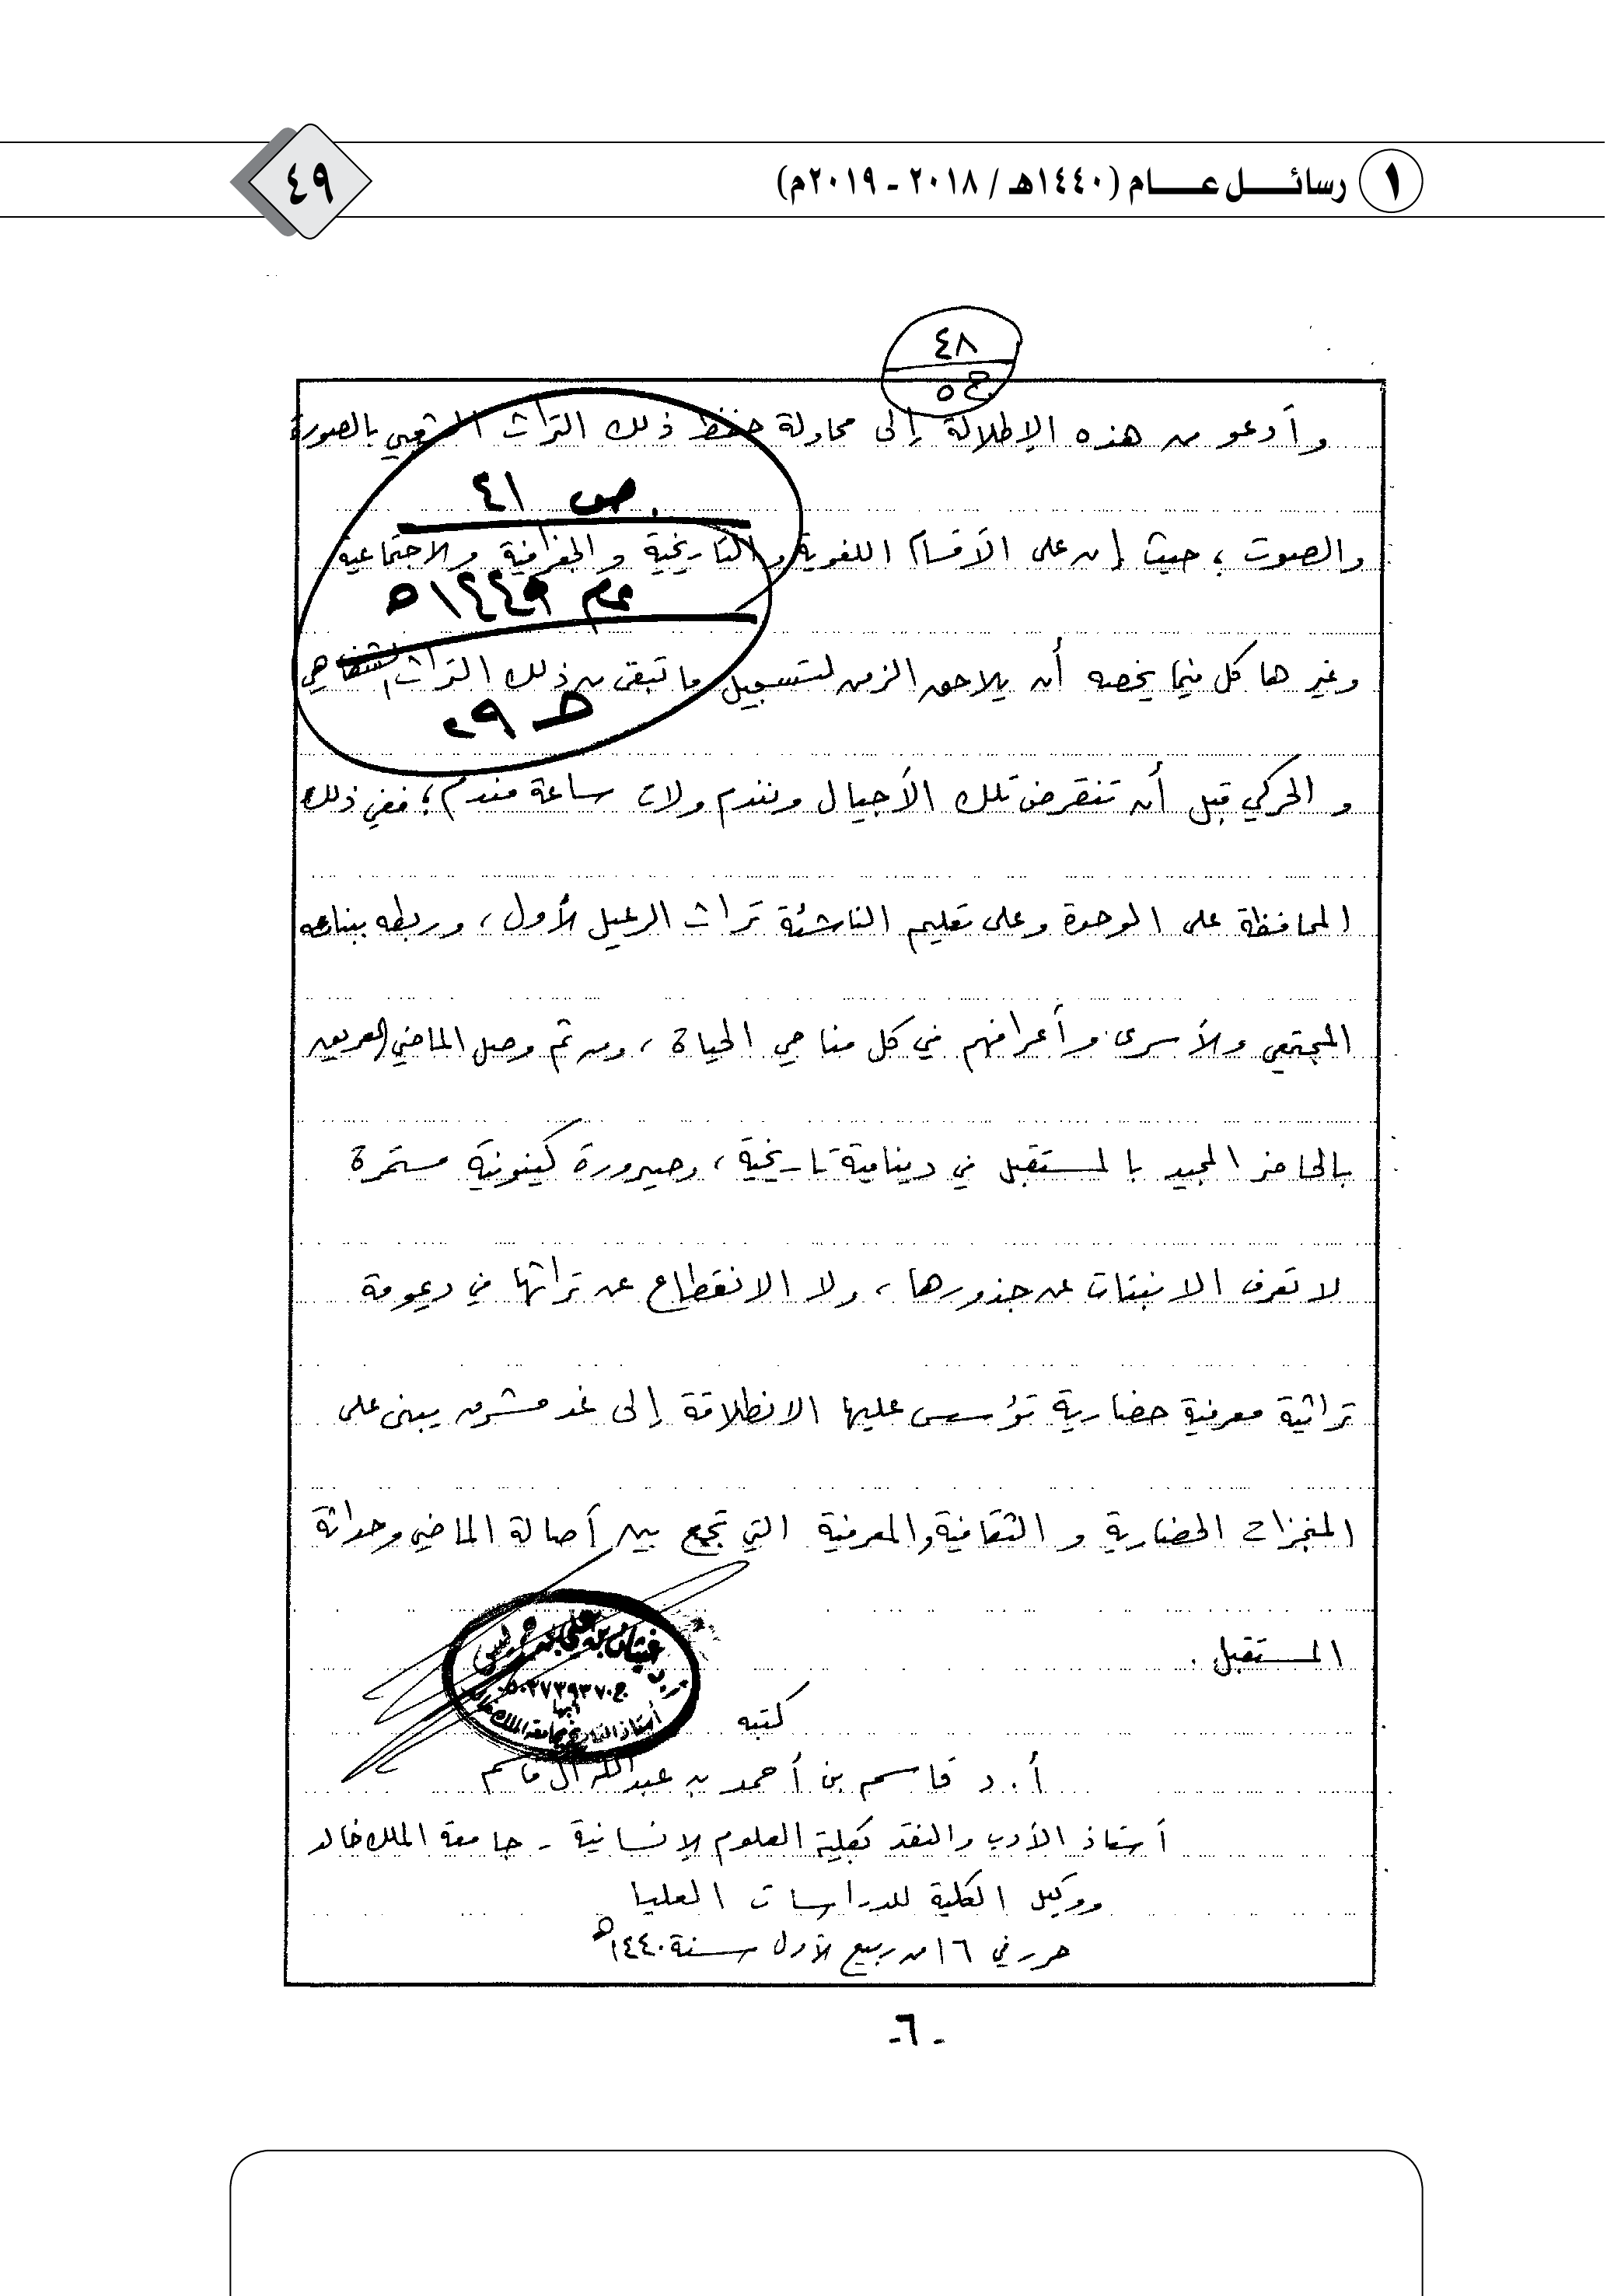 ١ رسائل عام (١٤٤٠هـ / ٢٠١٨ - ٢٠١٩م)
٤٩
٤٨
ج ٥
وأدعو من هذه الإطلالة إلى محاولة حفظ ذلك التراث الشعبي بالصورة
ص ٤١
والصوت ؛ حيث إن على الأقسام اللغوية والتاريخية والجغرافية والاجتماعية
عام ١٤٤٩هـ
وغيرها كل فيما يخصه أن يلاحق الزمن لتسجيل ما تبقى من ذلك التراث الشفاهي
والحركي قبل أن تنقرض تلك الأجيال ونندم ولات ساعة مندم ؛ ففي ذلك
المحافظة على الوحدة وعلى تعليم الناشئة تراث الرعيل الأول ، وربطه ببنائه
المجتمعي والأسرى وأعرافهم في كل مناحي الحياة ، ومن ثم وصل الماضي العريق
بالحاضر المجيد بالمستقبل في دينامية تاريخية ، وصيرورة كينونية مستمرة
لا تعرف الانبتات عن جذورها ، ولا الانقطاع عن تراثها في ديمومة
تراثية معرفية حضارية تؤسس عليها الانطلاقة إلى غد مشرق يبنى على
المنجزات الحضارية والثقافية والمعرفية التي تجمع بين أصالة الماضي وحداثة
المستقبل .
كتبه
أ.د قاسم بن أحمد بن عبدالله آل قاسم
أستاذ الأدب والنقد بكلية العلوم الإنسانية - جامعة الملك خالد
ووكيل الكلية للدراسات العليا
حرر في ١٦ من ربيع الأول سنة ١٤٤٠هـ
-٦-